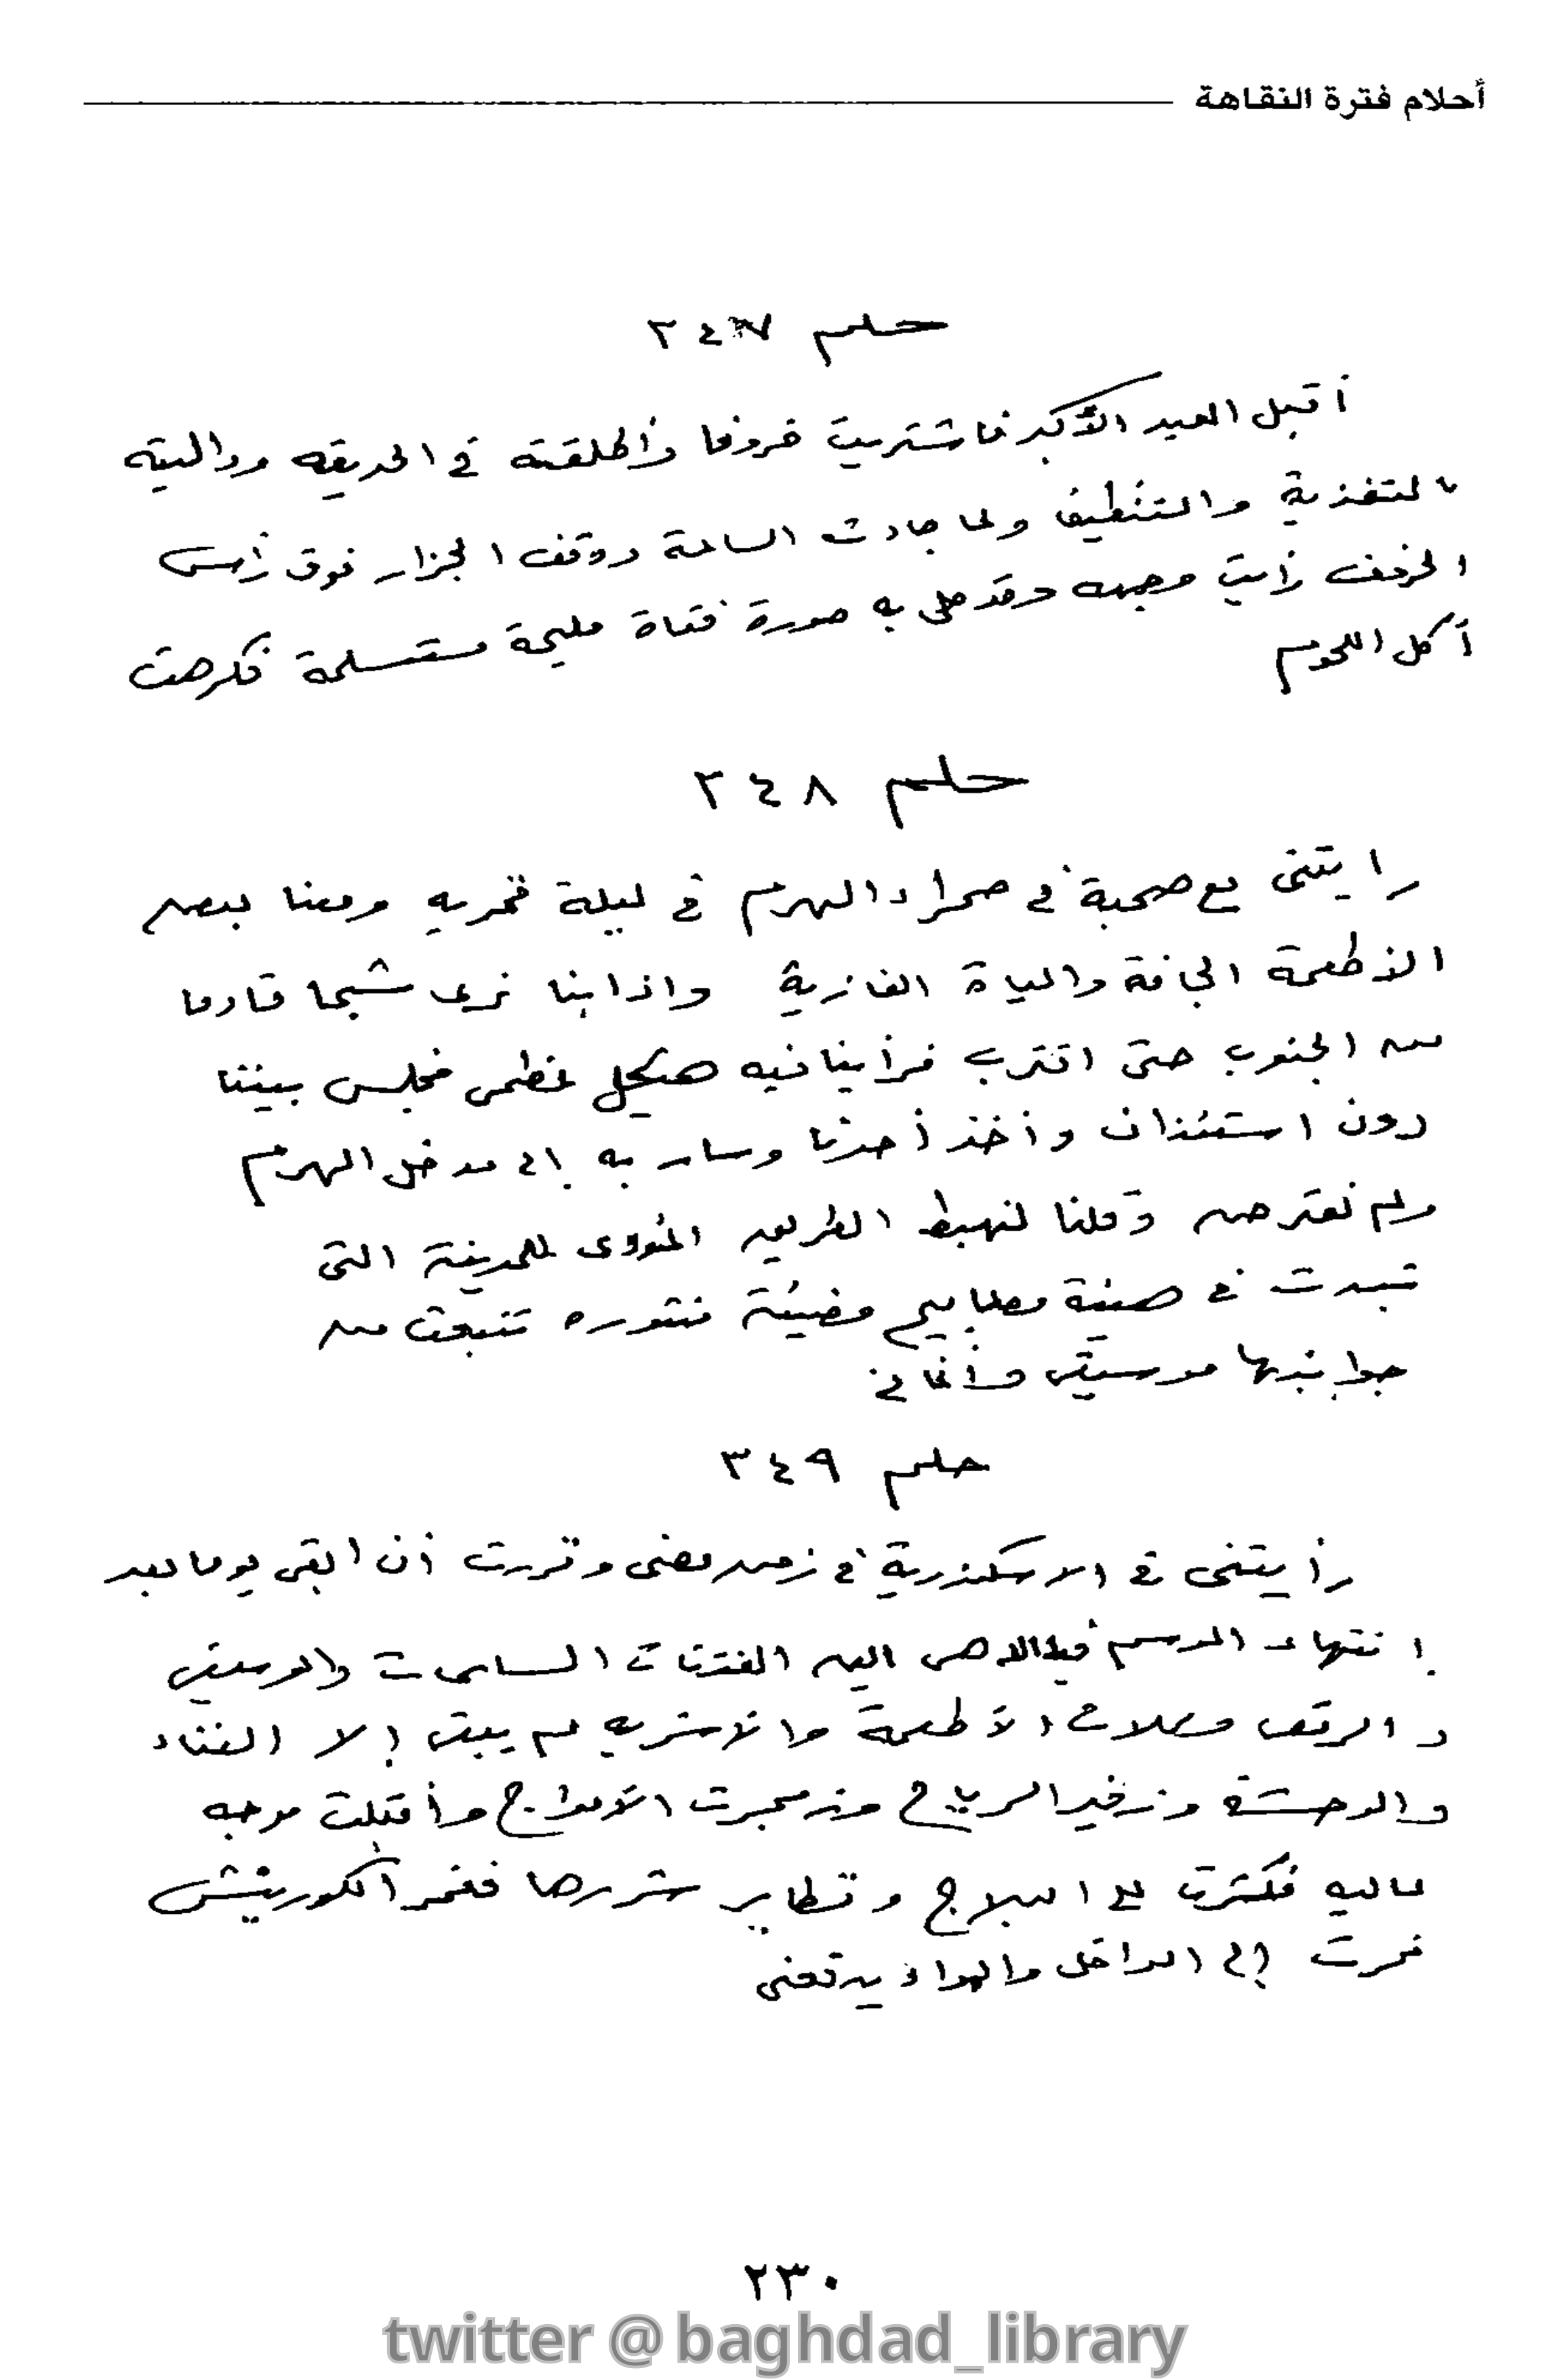 أحلام فترة النقاهة
حلم ٢٤٧
أقبل العيد الأكبر فاشتريت خروفا وأطلقته في الحديقه وواليته
بالتغذية والتنظيف ولما جاءت الساعة ووقف الجزار فوق رأس
الخروف رأيت وجهه وقد حلى به صورة فتاة مليحة مستسلمة فكرهت
أكل اللحوم
حلم ٢٤٨
رايتنى مع صحبة في صحراء الهرم في ليلة قمريه ومعنا بعض
الأطعمة الجافة والمياة الغازية واذا بنا نرى شبحا قادما
من الجنوب حتى اقترب فرأينا فيه هيكل عظمى فجلس بيننا
دون استئذان وأخذ أحدنا وسار به إلى مدخل الهرم
ولم نعترض وقلنا لنهبط الطريق المؤدى للمدينة التى
تبدت في صينية مصابيح مضيئة تنبعث من
جوانبها موسيقى وأغاني
حلم ٣٤٩
رأيتنى في الاسكندرية في زمن مضى وقررت أن ابقى يوما بعد
إنتهاء الموسم الفتيات السابحات والموسيقى
والرقص ومحلات الأطعمة والأشربه لم يبق إلا الفناء
والوحشة وزفير الرياح وزمجرت الأمواج وأقبلت موجه
عاليه فكشرت على البلاج وتطاير شررها فغمر الكورنيش
فجرت إلى الداخل والهواء يدفعنى
٢٣٠
twitter @baghdad_library